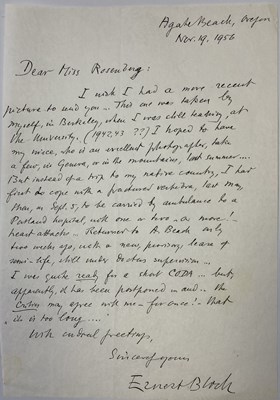 Agate Beach, Oregon
Nov. 19, 1956
Dear Miss Rosenberg:
I wish I had a more recent
picture to send you... This one was taken by
myself, in Berkeley, when I was still teaching, at
the University. (1942, 43 ??) I hoped to have
my niece, who is an excellent photographer, take
a few, in Geneva, or in the mountains, last summer....
But instead of a trip to my native country, I had
first to cope with a fractured vertebra, last May
then, on Sept. 5, to be carried by ambulance to a
Portland hospital, with one or two - or more!-
heart attacks... Returned to A. Beach only
two weeks ago, with a new, precious, lease of
semi-life, still under Doctors supervision...
I was quite ready for a short CODA... but,
apparently, it has been postponed - and.. the
Critics may agree with me - for once! - that
"it is too long....."
With cordial greetings,
Sincerely yours
Ernest Bloch